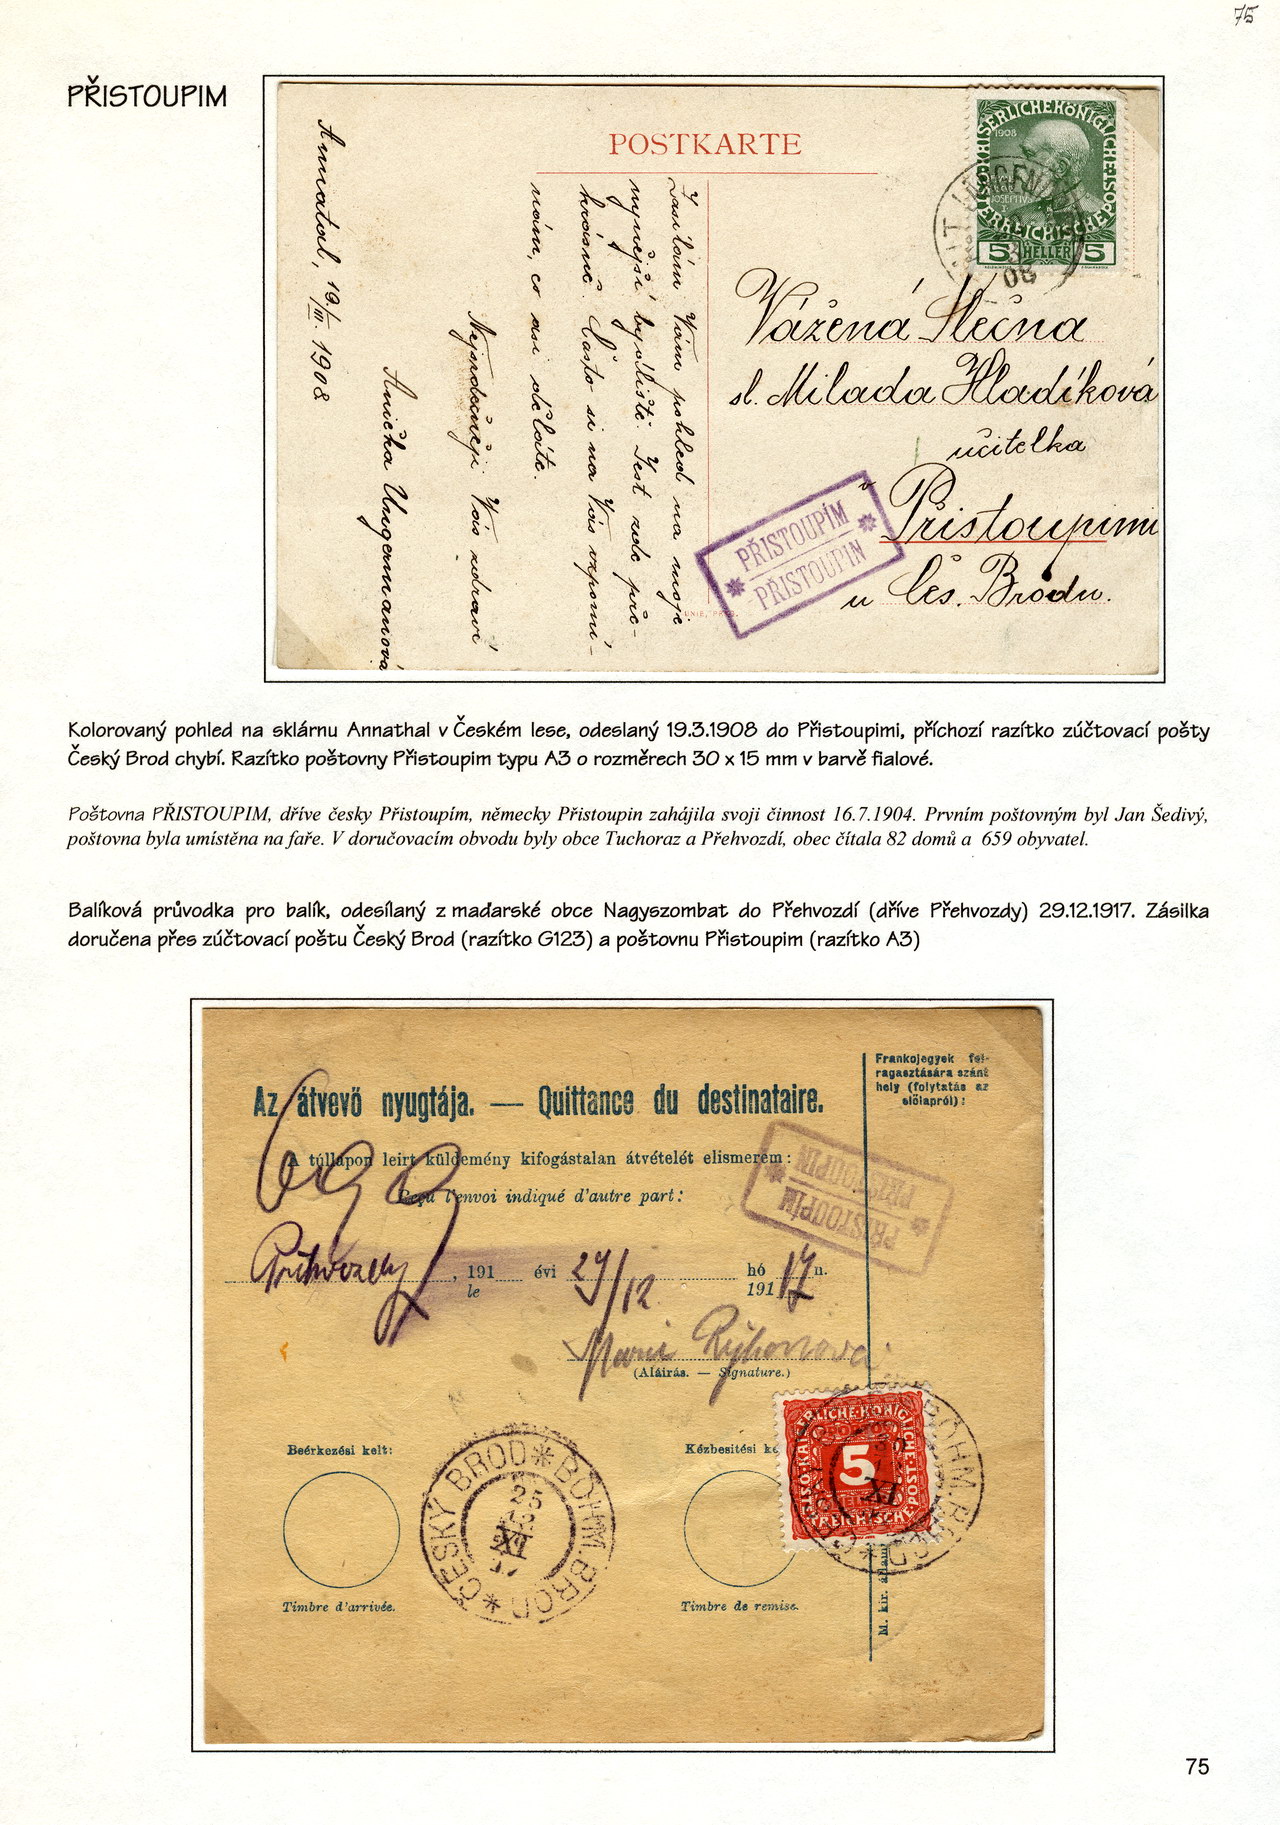 75
PŘISTOUPIM
POSTKARTE
KAISERLICHE KÖNIGLICHE
ÖSTERREICHISCHE POST
1908
5 HELLER 5
08
Annatal, 19./III. 1908
Zasílám Vám pohled na moje
nynější bydliště. Jest zde pře-
krásně. Často si na Vás vzpomí-
nám, co asi děláte.
Nejsrdečněji Vás zdraví
Anička Ungermanová
Vážená Slečna
sl. Milada Hladíková
učitelka
v Přistoupimi
u Čes. Brodu.
PŘISTOUPÍM
PŘISTOUPIN
Kolorovaný pohled na sklárnu Annathal v Českém lese, odeslaný 19.3.1908 do Přistoupimi, příchozí razítko zúčtovací pošty
Český Brod chybí. Razítko poštovny Přistoupim typu A3 o rozměrech 30 x 15 mm v barvě fialové.
Poštovna PŘISTOUPIM, dříve česky Přistoupím, německy Přistoupin zahájila svoji činnost 16.7.1904. Prvním poštovným byl Jan Šedivý,
poštovna byla umístěna na faře. V doručovacím obvodu byly obce Tuchoraz a Přehvozdí, obec čítala 82 domů a 659 obyvatel.
Balíková průvodka pro balík, odesílaný z maďarské obce Nagyszombat do Přehvozdí (dříve Přehvozdy) 29.12.1917. Zásilka
doručena přes zúčtovací poštu Český Brod (razítko G123) a poštovnu Přistoupim (razítko A3)
Frankojegyek fel-
ragasztására szánt
hely (folytatás az
előlapról):
Az átvevő nyugtája. — Quittance du destinataire.
A túllapon leirt küldemény kifogástalan átvételét elismerem:
Reçu l'envoi indiqué d'autre part:
PŘISTOUPÍM
PŘISTOUPIN
699
Přehvozdy, 191 évi 29/12 hó 17 n.
le 191
Marie
(Aláírás. — Signature.)
Beérkezési kelt:
Kézbesitési ke
ČESKÝ BROD * BÖHM. BROD *
25
XI
5
PORTO
BÖHM. BROD
XI
Timbre d'arrivée.
Timbre de remise.
M. kir. állam
75